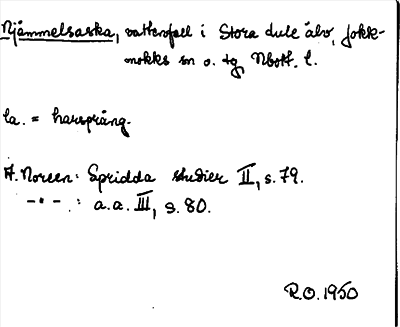 Njammelsaska, vattenfall i Stora Lule älv, Jokk-
mokks sn o. tg, Nbott. l.
la. = harsprång.
A. Noreen: Spridda studier II, s. 79.
-"- : a.a. III, s. 80.
R.O. 1950